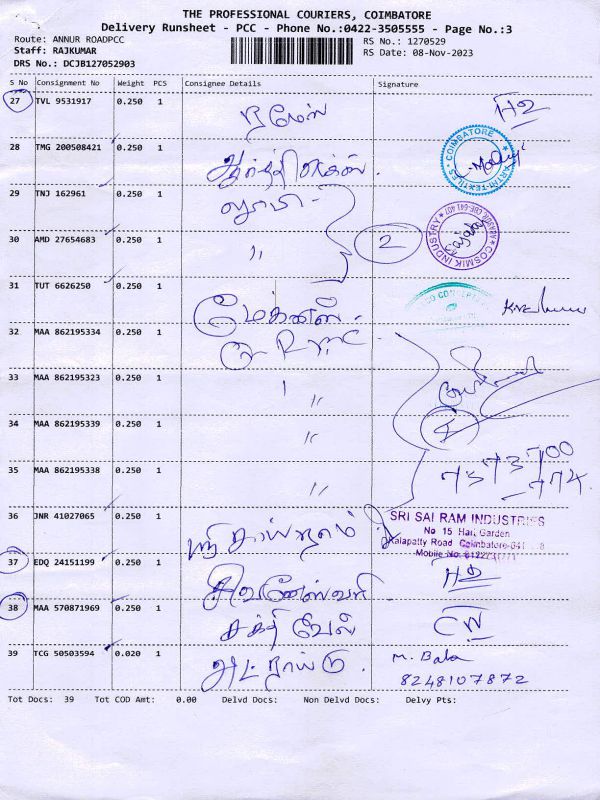 THE PROFESSIONAL COURIERS, COIMBATORE
Delivery Runsheet - PCC - Phone No.:0422-3505555 - Page No.:3
Route: ANNUR ROADPCC
Staff: RAJKUMAR
DRS No.: DCJB127052903
RS No.: 1270529
RS Date: 08-Nov-2023
S No Consignment No Weight PCS Consignee Details Signature
27 TVL 9531917 0.250 1 H2
28 TMG 200508421 0.250 1
COIMBATORE
29 TNJ 162961 0.250 1
COSMIK INDUSTRY
30 AMD 27654683 0.250 1 〃 2
31 TUT 6626250 0.250 1
32 MAA 862195334 0.250 1
33 MAA 862195323 0.250 1 〃
34 MAA 862195339 0.250 1 〃
35 MAA 862195338 0.250 1 〃
36 JNR 41027065 0.250 1 ஸ்ரீ சாய்ராம்
SRI SAI RAM INDUSTRIES
No 15 Hari Garden
Kalapatty Road Coimbatore
Mobile No
37 EDQ 24151199 0.250 1 புவனேஸ்வரி
38 MAA 570871969 0.250 1 சக்தி வேல்
39 TCG 50503594 0.020 1 M. Bala
8248107872
Tot Docs: 39 Tot COD Amt: 0.00 Delvd Docs: Non Delvd Docs: Delvy Pts: